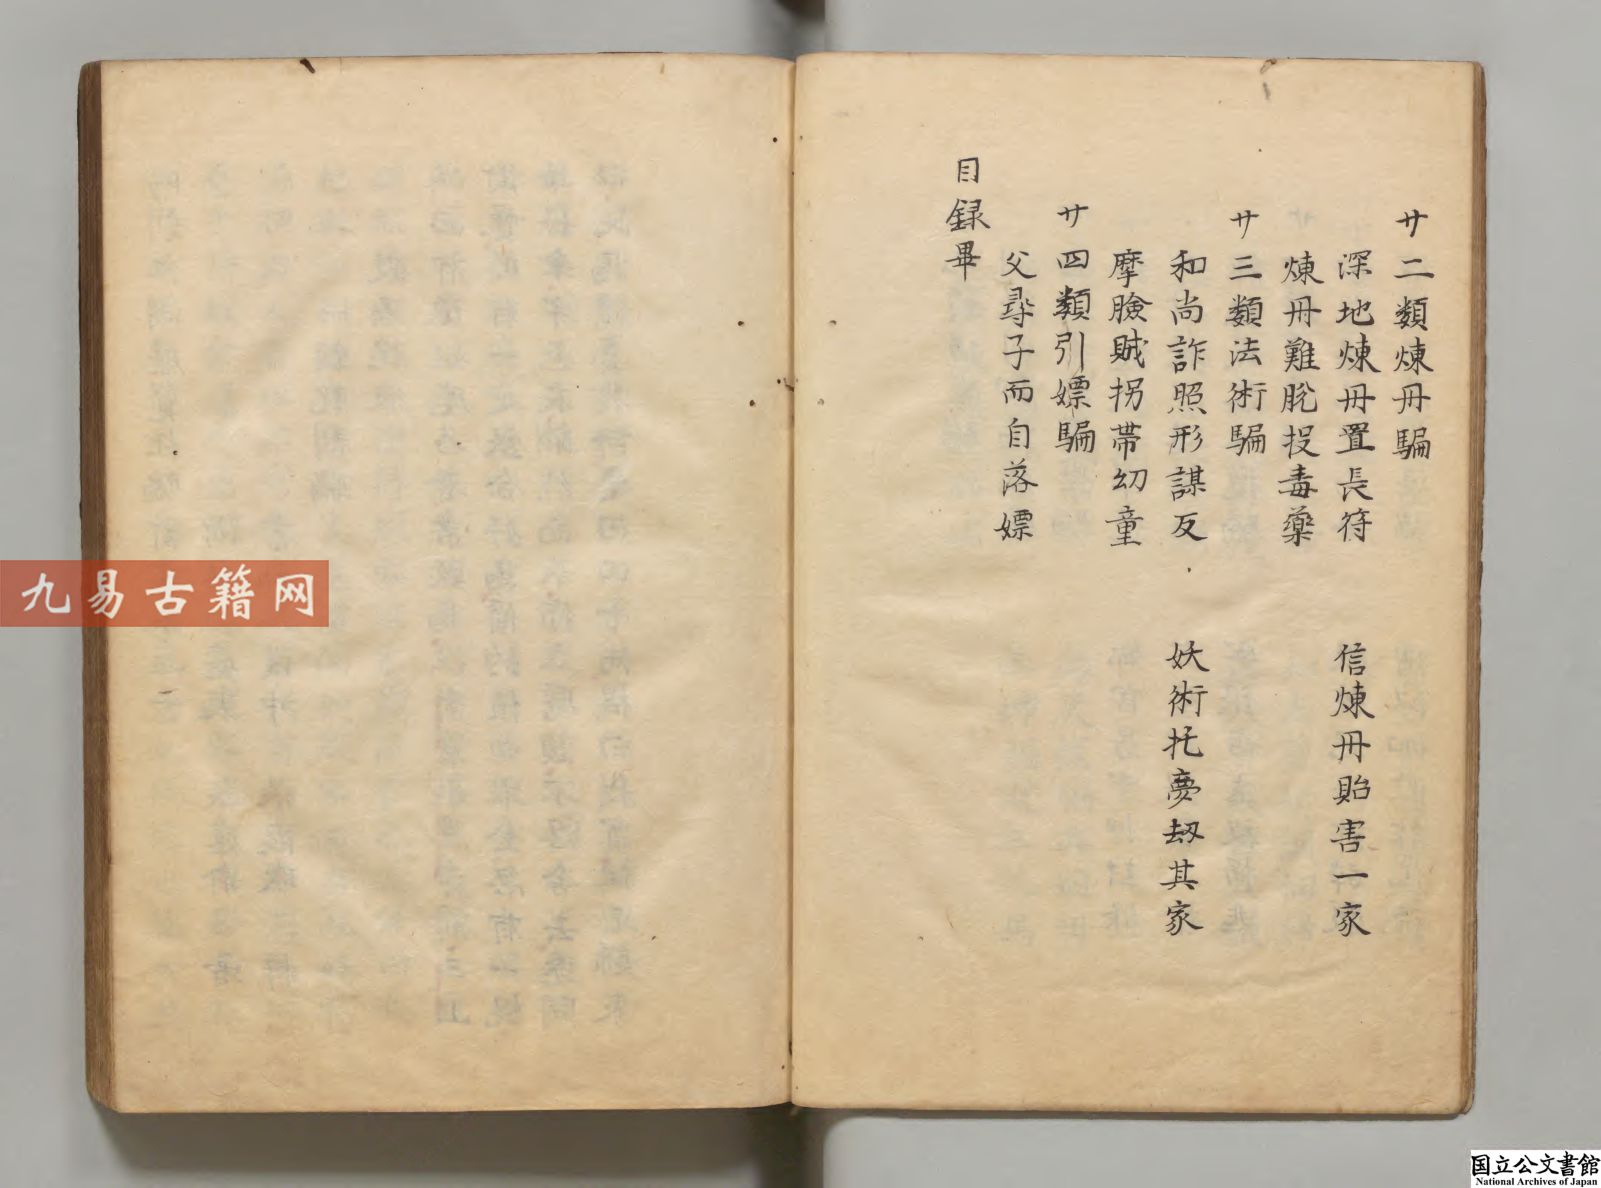 廿二類煉丹騙
深地煉丹置長符　信煉丹貽害一家
煉丹難脫投毒藥
廿三類法術騙
和尚詐照形謀反　妖術托夢劫其家
摩臉賊拐帶幼童
廿四類引嫖騙
父尋子而自落嫖
目録畢
九易古籍网
国立公文書館
National Archives of Japan